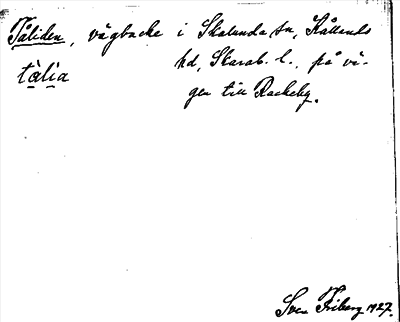 Tåliden, vägbacke i Skalunda sn, Kållands
hd, Skarab. l., på vä-
tàlia
gen till Rackeby.
Sven Friberg 1927.